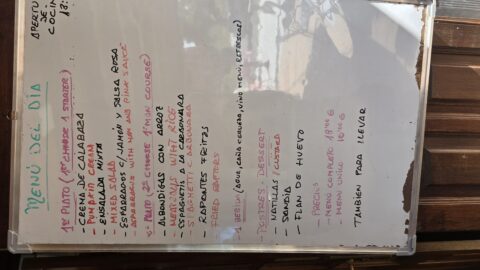 MENÚ DEL DÍA
APERTURA DE COCINA
13:
1er PLATO (1st CHOOSE 1 STARTER)
- CREMA DE CALABAZA
- PUMPKIN CREAM
- ENSALADA MIXTA
- MIXED SALAD
- ESPARRAGOS C/JAMON Y SALSA ROSA
ASPARAGUS WITH HAM AND PINK SAUCE
2º PLATO (2º CHOOSE 1 MAIN COURSE)
- ALBONDIGAS CON ARROZ
MEATBALLS WITH RICE
- ESPAGUETIS A LA CARBONARA
SPAGHETTI CARBONARA
- RAPONTES FRITAS
FRIED
1 BEBIDA (AGUA, CAÑA CERVEZA, VINO MENÚ, REFRESCOS)
- POSTRES - DESSERT
- NATILLAS / CUSTARD
- SANDIA
- FLAN DE HUEVO
- PRECIOS
- MENÚ COMPLETO
- MENÚ ÚNICO
TAMBIEN PARA LLEVAR